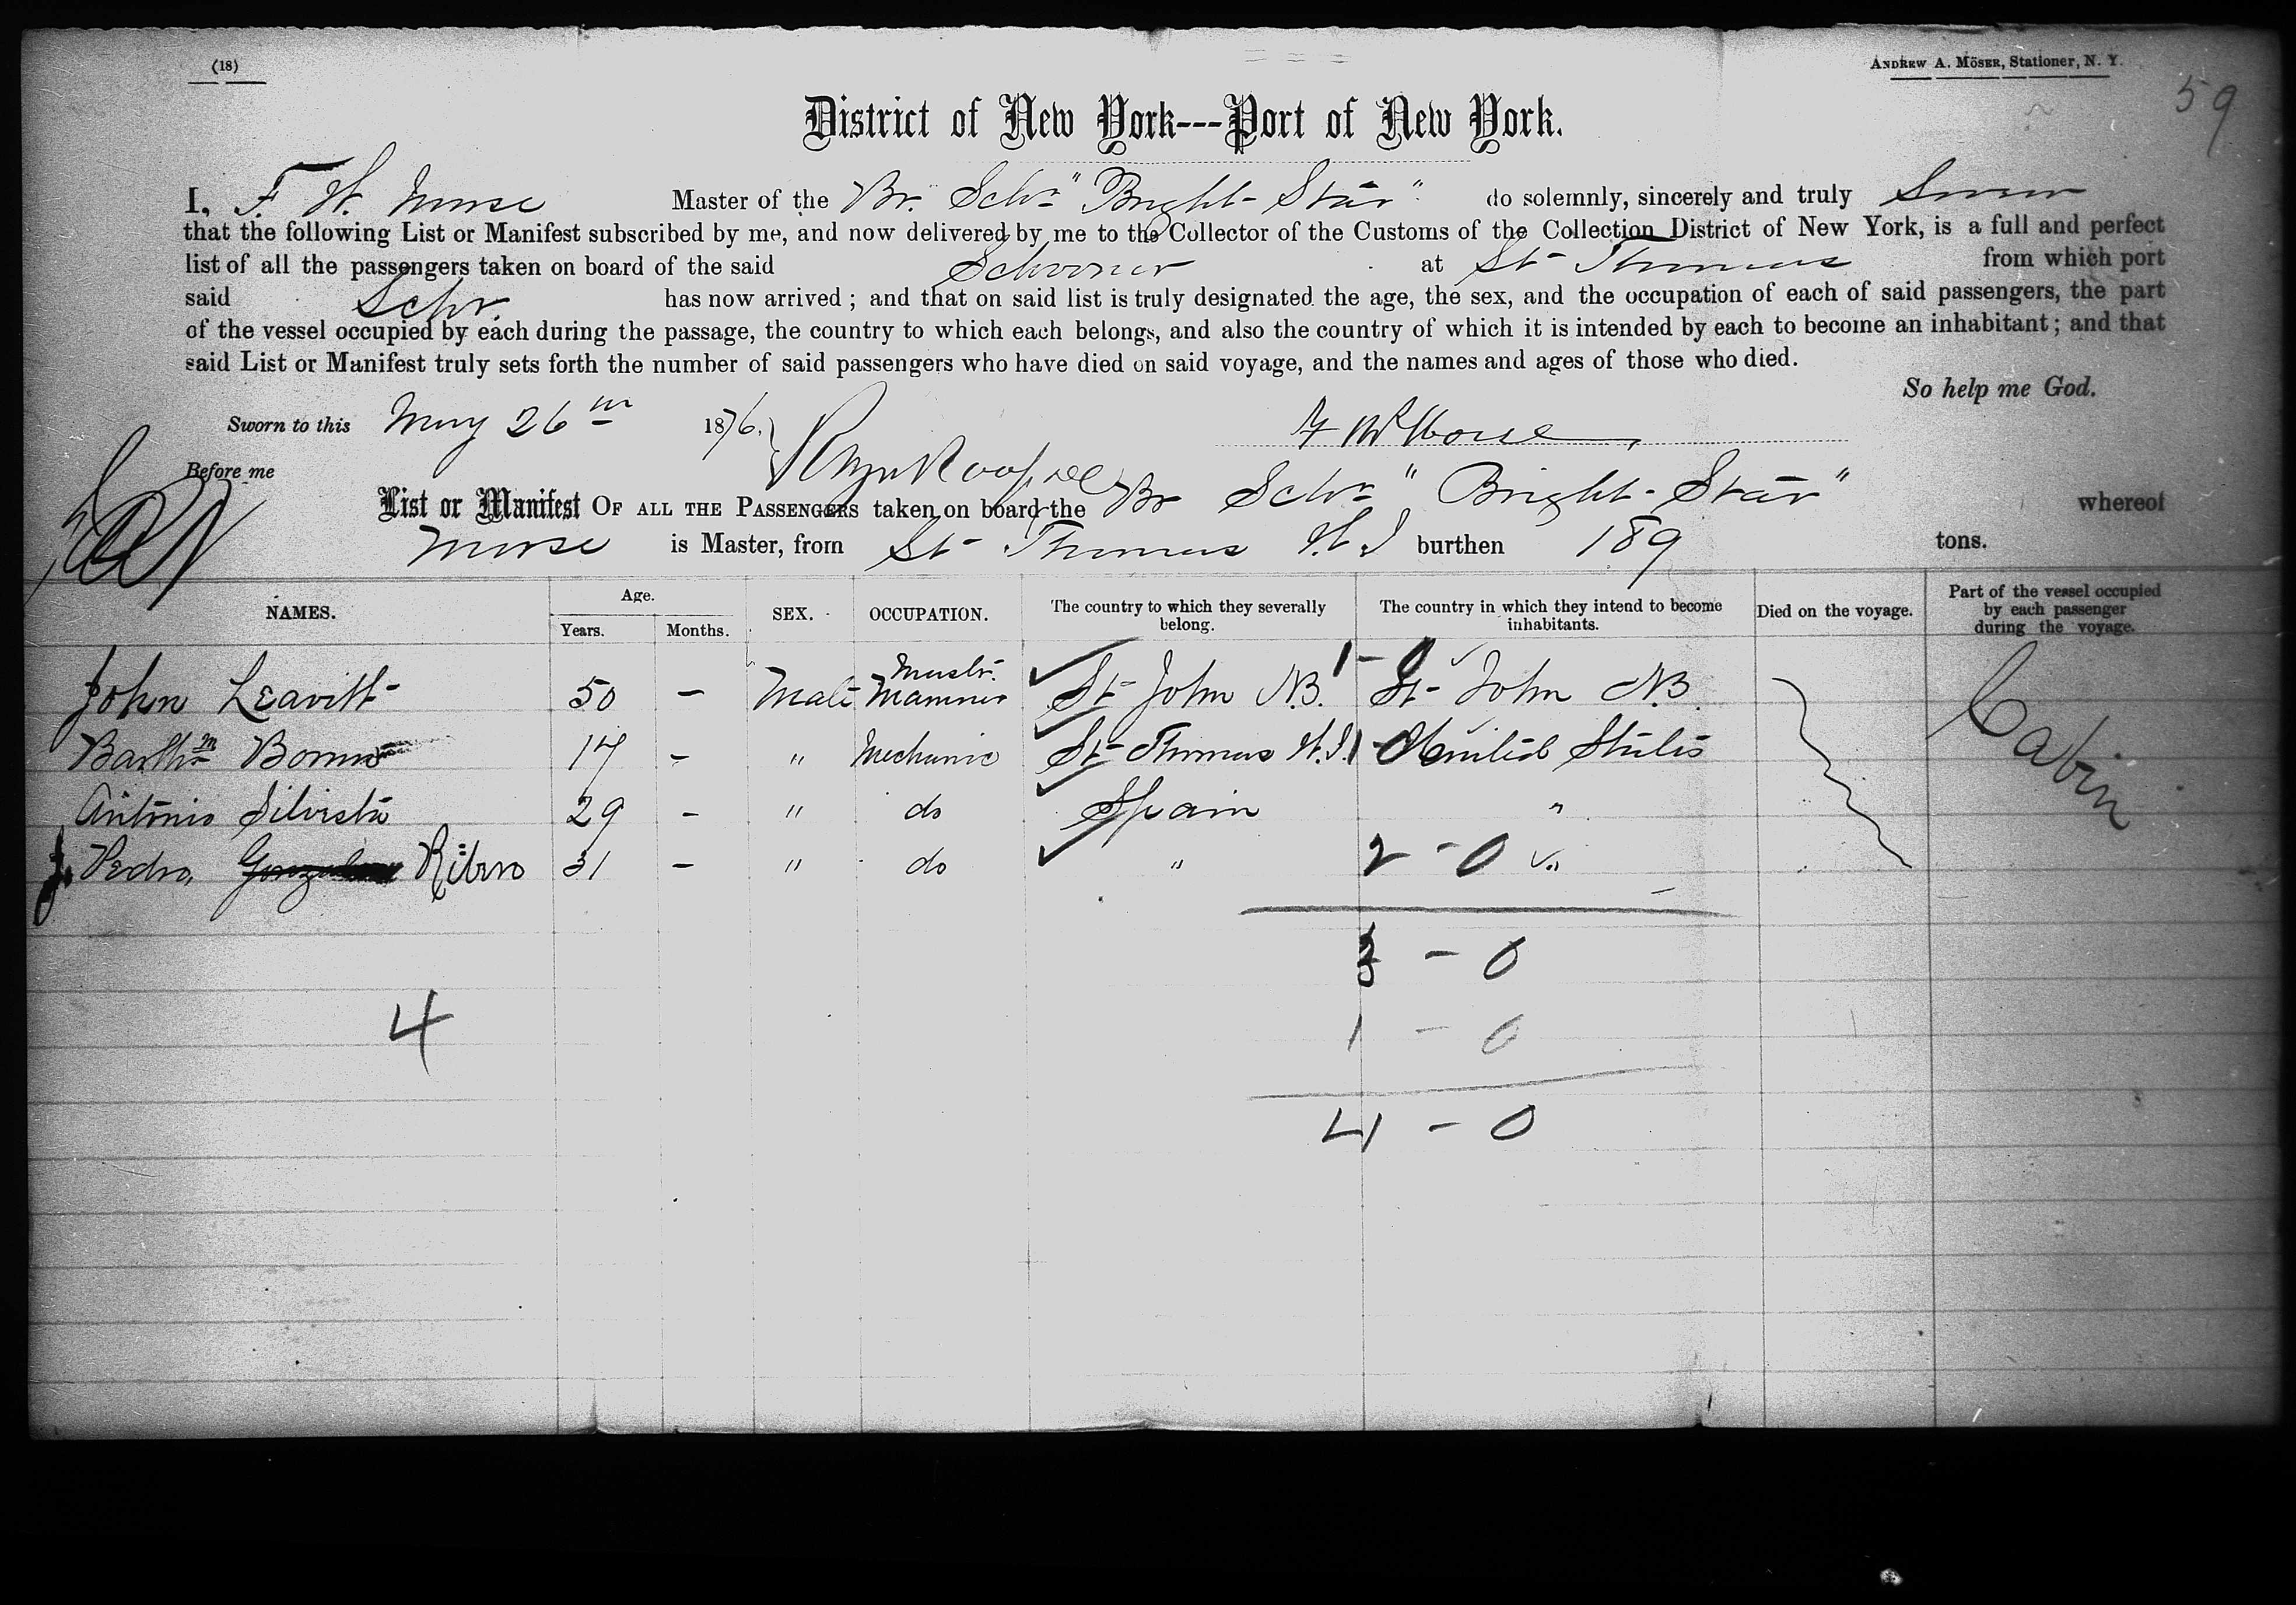 (18)
ANDREW A. MÖSER, Stationer, N. Y.
59
District of New York---Port of New York.
I, F. W. Morse Master of the Br. Schr "Bright Star" do solemnly, sincerely and truly Swear
that the following List or Manifest subscribed by me, and now delivered by me to the Collector of the Customs of the Collection District of New York, is a full and perfect
list of all the passengers taken on board of the said Schooner at St Thomas from which port
said Schr. has now arrived; and that on said list is truly designated the age, the sex, and the occupation of each of said passengers, the part
of the vessel occupied by each during the passage, the country to which each belongs, and also the country of which it is intended by each to become an inhabitant; and that
said List or Manifest truly sets forth the number of said passengers who have died on said voyage, and the names and ages of those who died.
So help me God.
Sworn to this May 26th 1876. F W Morse
Before me
List or Manifest OF ALL THE PASSENGERS taken on board the Br Schr "Bright Star" whereof
Morse is Master, from St Thomas W I burthen 189 tons.
NAMES. Age. Years. Months. SEX. OCCUPATION. The country to which they severally belong. The country in which they intend to become inhabitants. Died on the voyage. Part of the vessel occupied by each passenger during the voyage.
John Leavitt 50 - Male Mastr. Mariner St John N.B. 1-0 St John N.B. Cabin
Barthm 17 - " Mechanic St Thomas W.I. 1-0 United States
Antonio Silvistre 29 - " do Spain "
Pedro Ribero 31 - " do " 2-0 "
3 - 0
4
1 - 0
4 - 0